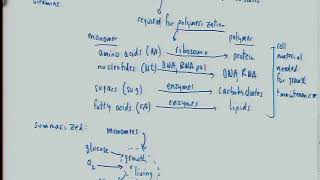 vitamins
required for polymerization
monomer polymer
amino acids (AA) ribosome protein
nucleotides (Nt) DNA, RNA pol DNA, RNA
sugars (sug) enzymes carbohydrates
fatty acids (FA) enzymes lipids
cell
material
needed
for growth
maintenance
summarized:
monomers
glucose growth
O2 living